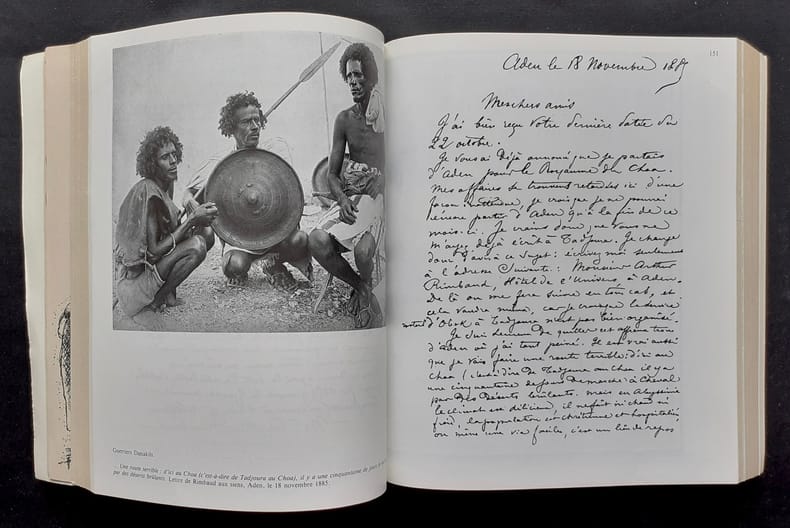 Guerriers Danakils
... Une route terrible : d'ici au Choa (c'est-à-dire de Tadjoura au Choa), il y a une cinquantaine de jours
par des déserts brûlants. Lettre de Rimbaud aux siens, Aden, le 18 novembre 1885.
151
Aden le 18 Novembre 1885
Mes chers amis
J'ai bien reçu votre dernière datée du
22 octobre.
Je vous ai déjà annoncé que je partais
d'Aden pour le Royaume du Choa.
Mes affaires se trouvent retardées ici d'une
façon inattendue, je crois que je ne pourrai
encore partir d'Aden qu'à la fin de ce
mois-ci. Je crains donc que vous ne
m'ayez déjà écrit à Tadjoura. Je change
donc d'avis à ce sujet : écrivez moi seulement
à l'adresse suivante : Monsieur Arthur
Rimbaud, Hôtel de l'Univers, à Aden.
De là on me fera suivre en tous cas, et
cela vaudra mieux, car je crois que le service
postal d'Obok à Tadjoura n'est pas bien organisé.
Je suis heureux de quitter cet affreux trou
d'Aden où j'ai tant peiné. Il est vrai aussi
que je vais faire une route terrible : d'ici au
Choa (c'est à dire de Tadjoura au Choa il y a
une cinquantaine de jours de marche à cheval
par des déserts brûlants. mais en Abyssinie
le climat est délicieux, il ne fait ni chaud ni
froid, la population est chrétienne et hospitalière,
on mène une vie facile, c'est un lieu de repos